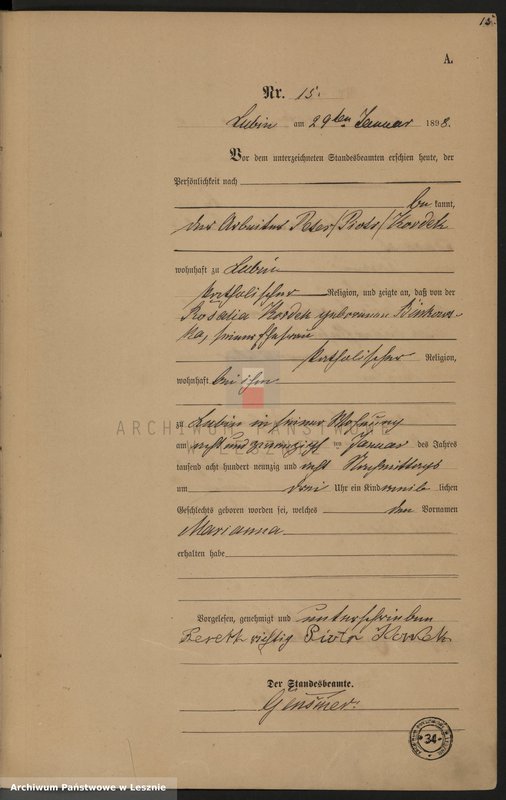 15.
A.
Nr. 15.
Lubin am 29ten Januar 1898.
Vor dem unterzeichneten Standesbeamten erschien heute, der
Persönlichkeit nach
be kannt,
der Arbeiter Peter /Piotr/ Kordek
wohnhaft zu Lubin
katholischer Religion, und zeigte an, daß von der
Rosalia Kordek geborenen Binkows-
ka, seiner Ehefrau
katholischer Religion,
wohnhaft bei ihm
zu Lubin in seiner Wohnung
am acht und zwanzigsten Januar des Jahres
tausend acht hundert neunzig und acht Nachmittags
um drei Uhr ein Kind weib lichen
Geschlechts geboren worden sei, welches den Vornamen
Marianna
erhalten habe
Vorgelesen, genehmigt und unterschrieben
richtig Piotr Kordek
Der Standesbeamte.
ARCHIWUM PAŃSTWOWE
W LESZNIE
34
Archiwum Państwowe w Lesznie